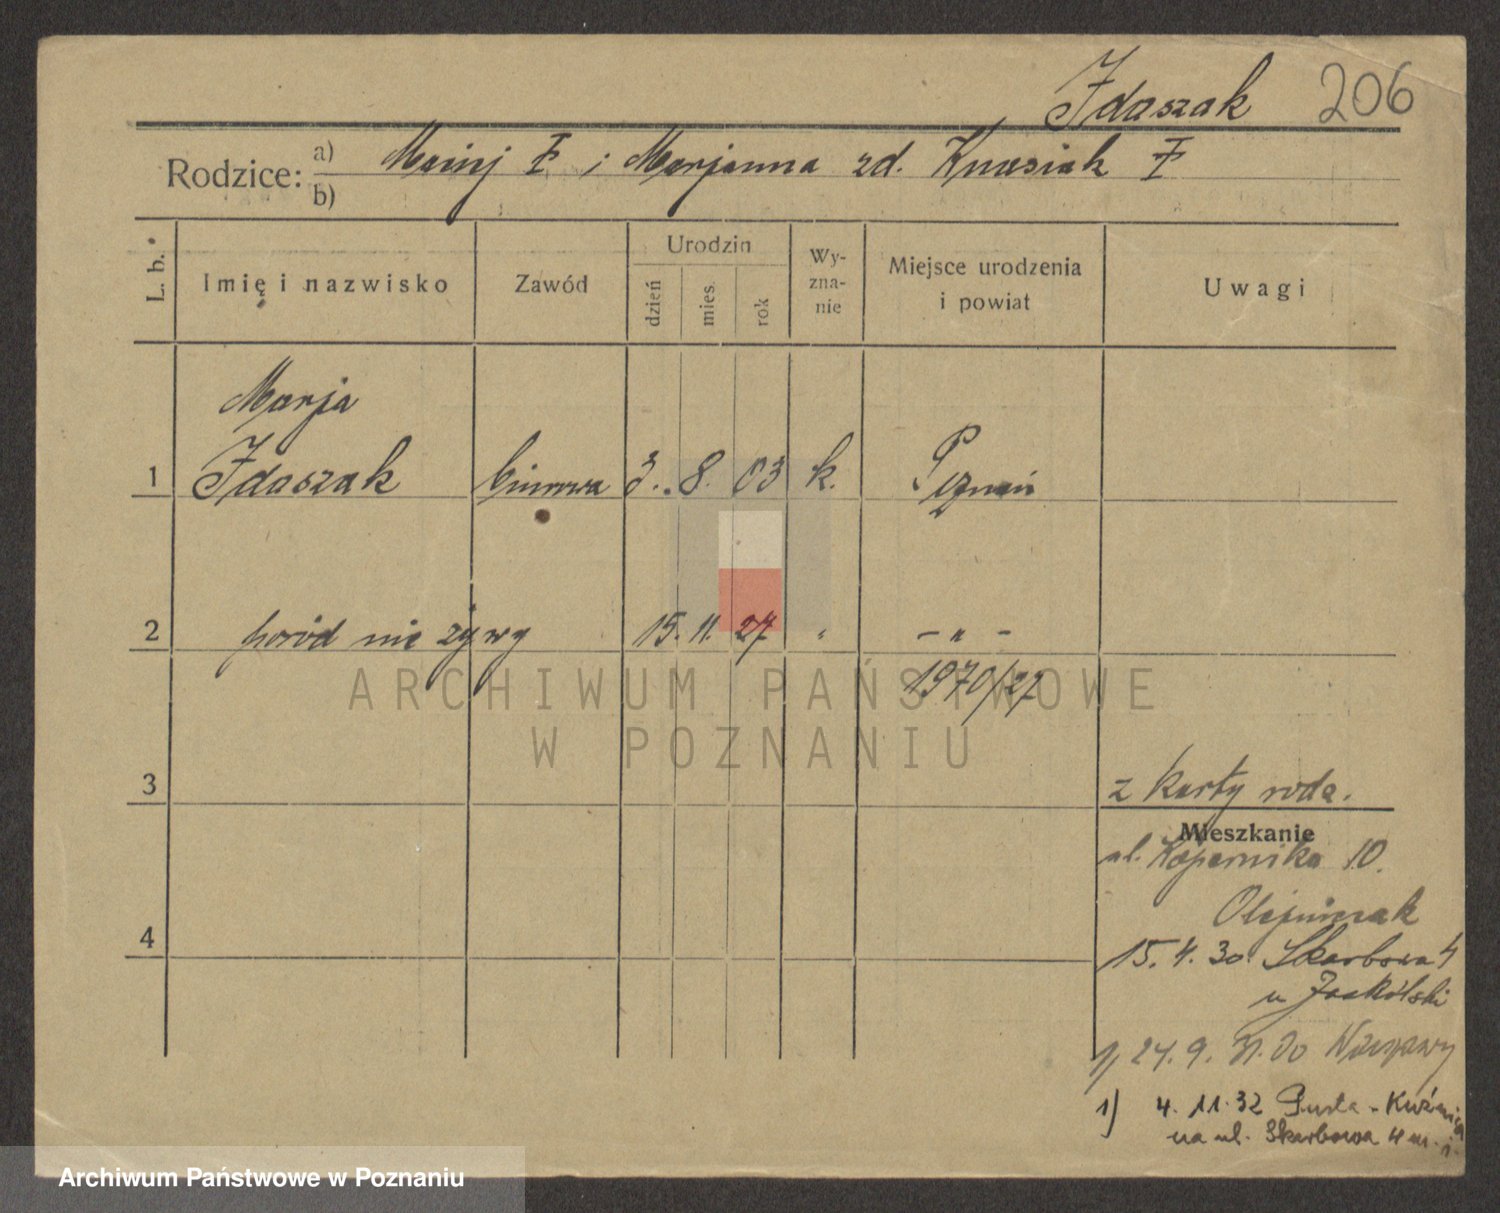 Idaszak 206
Rodzice: a) b)
i Marjanna zd.
L. b.
Imię i nazwisko
Zawód
Urodzin
dzień
mies.
rok
Wy-
zna-
nie
Miejsce urodzenia
i powiat
Uwagi
Marja
1 Idaszak biurowa 3. 8. 03 k. Poznań
2 poród nie żywy 15. 11. 27 " - " -
1970/27
ARCHIWUM PAŃSTWOWE
W POZNANIU
3
z karty rodz.
Mieszkanie
ul. Kopernika 10.
Olejniczak
4
15. 4. 30 Skarbowa 4
u Jaskólski
1) 24. 9. 31. do
1) 4. 11. 32 Pusta-
na ul. Skarbowa 4 m.
Archiwum Państwowe w Poznaniu